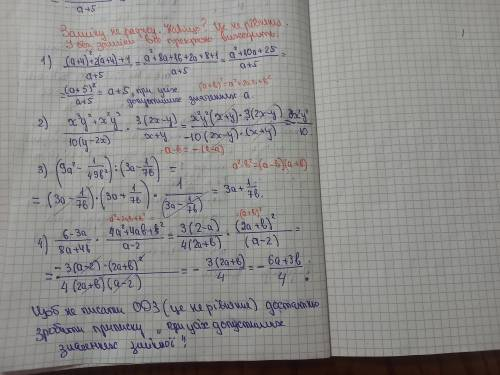 a+5
Заміну не раджу. Навіщо? Це не рівняння.
І без заміни все прекрасно виходить.
1) ((a+4)²+2(a+4)+1)/(a+5) = (a²+8a+16+2a+8+1)/(a+5) = (a²+10a+25)/(a+5) =
= (a+5)²/(a+5) = a+5, при усіх допустимих значеннях a.
(a+b)²=a²+2ab+b²
2) (x³y²+x²y³)/(10(y-2x)) · (3(2x-y))/(x+y) = (x²y²(x+y)·3(2x-y))/(-10(2x-y)·(x+y)) = -3x²y²/10.
a-b=-(b-a)
3) (9a²-1/(49b²)):(3a-1/(7b)) =
a²-b²=(a-b)(a+b)
= (3a-1/(7b))·(3a+1/(7b))·1/(3a-1/(7b)) = 3a+1/(7b).
a²+2ab+b²=(a+b)²
4) (6-3a)/(8a+4b) · (4a²+4ab+b²)/(a-2) = (3(2-a))/(4(2a+b)) · (2a+b)²/(a-2) =
= (-3(a-2)·(2a+b)²)/(4(2a+b)(a-2)) = -(3(2a+b))/4 = -(6a+3b)/4.
Щоб не писати ОДЗ (це не рівняння) достатньо
зробити приписку „при усіх допустимих
значеннях змінної".